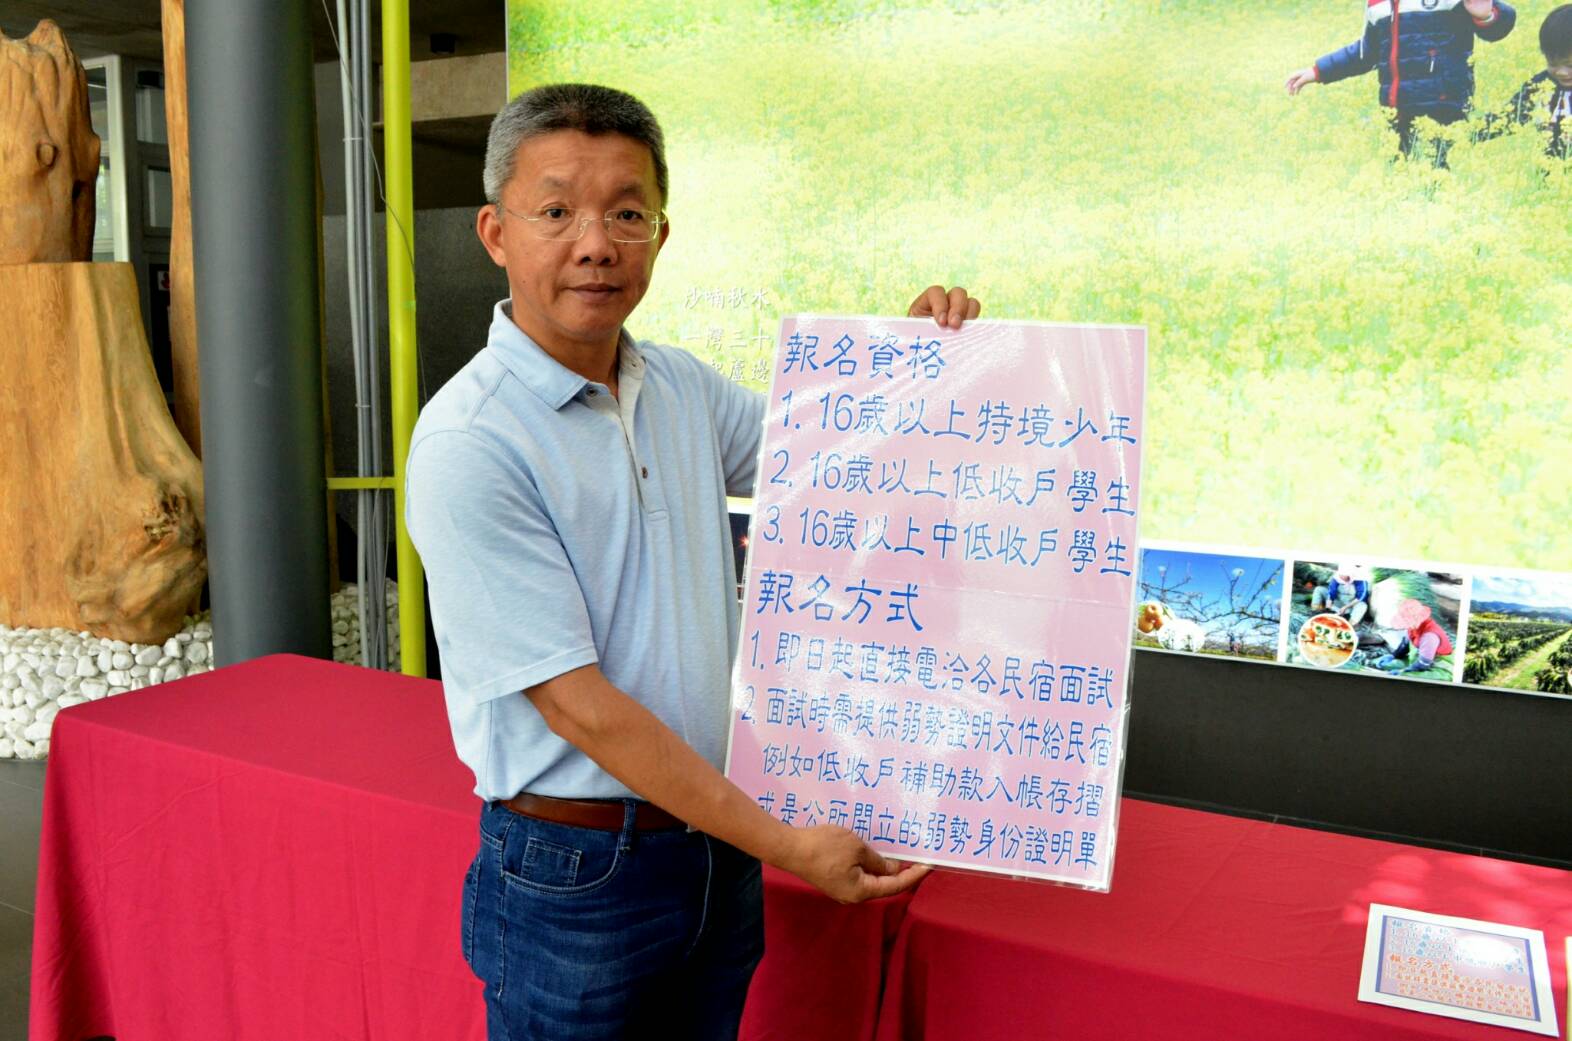 沙喃秋水
一灣三十
起蘆邊
報名資格
1. 16歲以上特境少年
2. 16歲以上低收戶學生
3. 16歲以上中低收戶學生
報名方式
1. 即日起直接電洽各民宿面試
2. 面試時需提供弱勢證明文件給民宿
例如低收戶補助款入帳存摺
或是公所開立的弱勢身份證明單
報名資格
報名方式